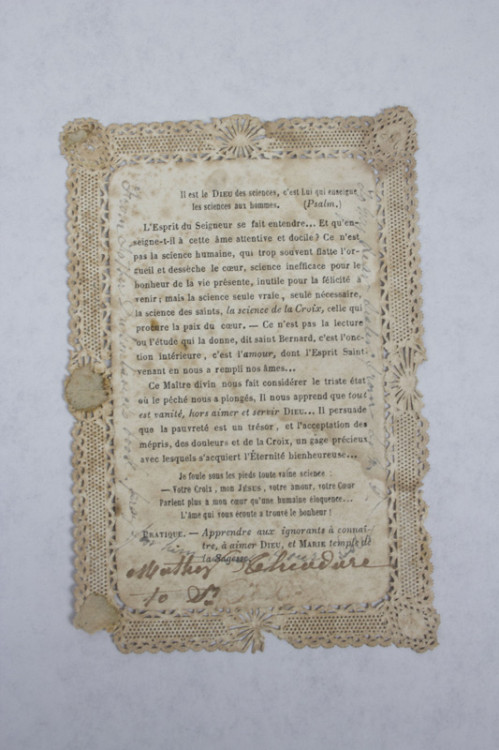 Il est le DIEU des sciences, c'est Lui qui enseigne
les sciences aux hommes. (Psalm.)
L'Esprit du Seigneur se fait entendre... Et qu'en-
seigne-t-il à cette âme attentive et docile? Ce n'est
pas la science humaine, qui trop souvent flatte l'or-
gueil et dessèche le cœur, science inefficace pour le
bonheur de la vie présente, inutile pour la félicité à
venir; mais la science seule vraie, seule nécessaire,
la science des saints, la science de la Croix, celle qui
procure la paix du cœur. — Ce n'est pas la lecture
ou l'étude qui la donne, dit saint Bernard, c'est l'onc-
tion intérieure, c'est l'amour, dont l'Esprit Saint
venant en nous a rempli nos âmes...
Ce Maître divin nous fait considérer le triste état
où le péché nous a plongés. Il nous apprend que tout
est vanité, hors aimer et servir DIEU... Il persuade
que la pauvreté est un trésor, et l'acceptation des
mépris, des douleurs et de la Croix, un gage précieux
avec lesquels s'acquiert l'Éternité bienheureuse...
Je foule sous les pieds toute vaine science :
— Votre Croix, mon JÉSUS, votre amour, votre Cœur
Parlent plus à mon cœur qu'une humaine éloquence...
L'âme qui vous écoute a trouvé le bonheur !
PRATIQUE. — Apprendre aux ignorants à connaî-
tre, à aimer DIEU, et MARIE temple de
la Sagesse.